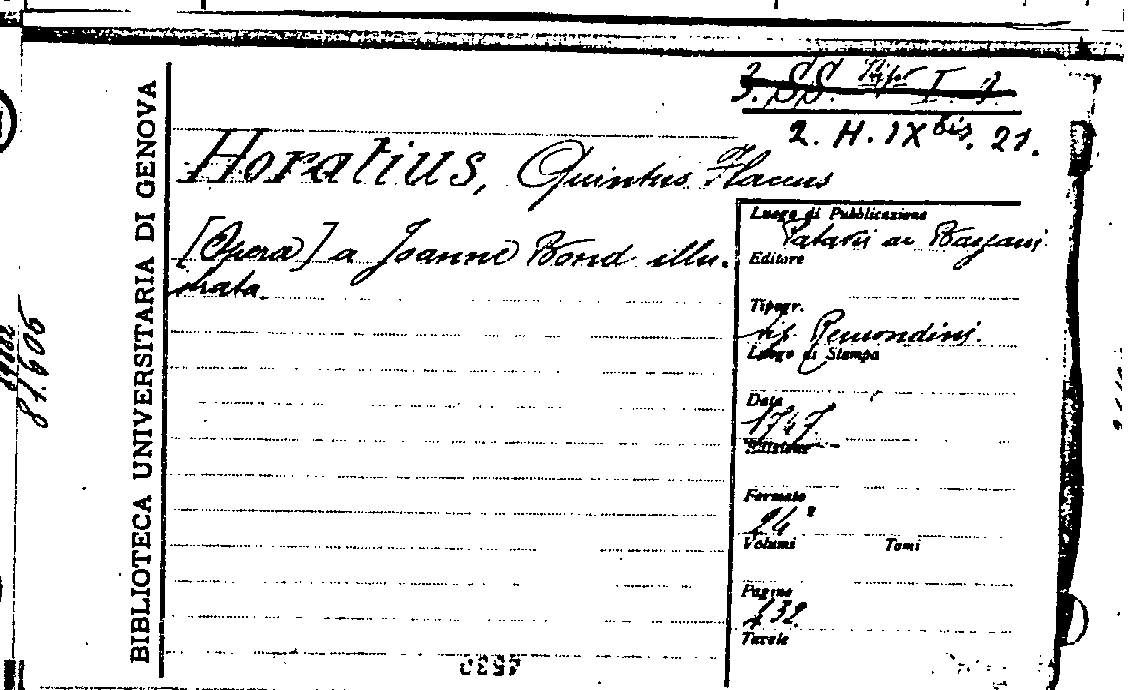 BIBLIOTECA UNIVERSITARIA DI GENOVA
3. SS. I. 7.
2. H. IX bis. 21.
Horatius, Quintus Flaccus
[Opera] a Joanne Bond illu-
strata.
Luogo di Pubblicazione
Patavii ac Bassani
Editore
Tipogr.
tip. Remondini.
Luogo di Stampa
Data
1747.
Edizione
Formato
24°
Volumi Tomi
Pagine
432.
Tavole
81.606